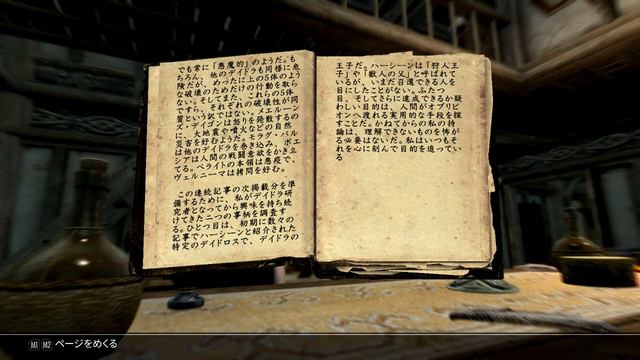 でも常に「悪魔的」のようだ。も
ちろん、他のデイドラも同様に危
険だが、めったに上の5体のよう
な破壊のためだけの行動を取ら
ない。そしてまた、これらの5体
ですら、それぞれの破壊性が同
質という訳ではない。メエルーン
ズ・デイゴンは怒りを発散するの
に、大地震や噴火などの自然
災害を好むようだ。モラグ・バル
は他のデイドラを巻き込み、ボエ
シアは人間の戦闘意欲をかき立
てる。ペライトの本領は悪疫で、
ヴェルニーマは拷問を好む。
この連続記事の次掲載分を準
備するために、私がデイドラ研
究者となってから興味を持ち続
けてきた二つの事柄を調査す
る。ひとつ目は、初期に数々の
記事でハーシーンと紹介された
特定のデイドロスで、デイドラの
王子だ。ハーシーンは「狩人王
子」や「獣人の父」と呼ばれて
いるが、いまだ召還できる人を
目にしたことがない。ふたつ
目、そしてさらに達成できるか疑
わしい目的は、人間がオブリビ
オンへ渡れる実用的な手段を探
すことだ。かねてからの私の持
論は、理解できないものを怖が
る必要はないだ。私はいつもそ
れを心に刻んで目的を追ってい
る
M1 M2 ページをめくる